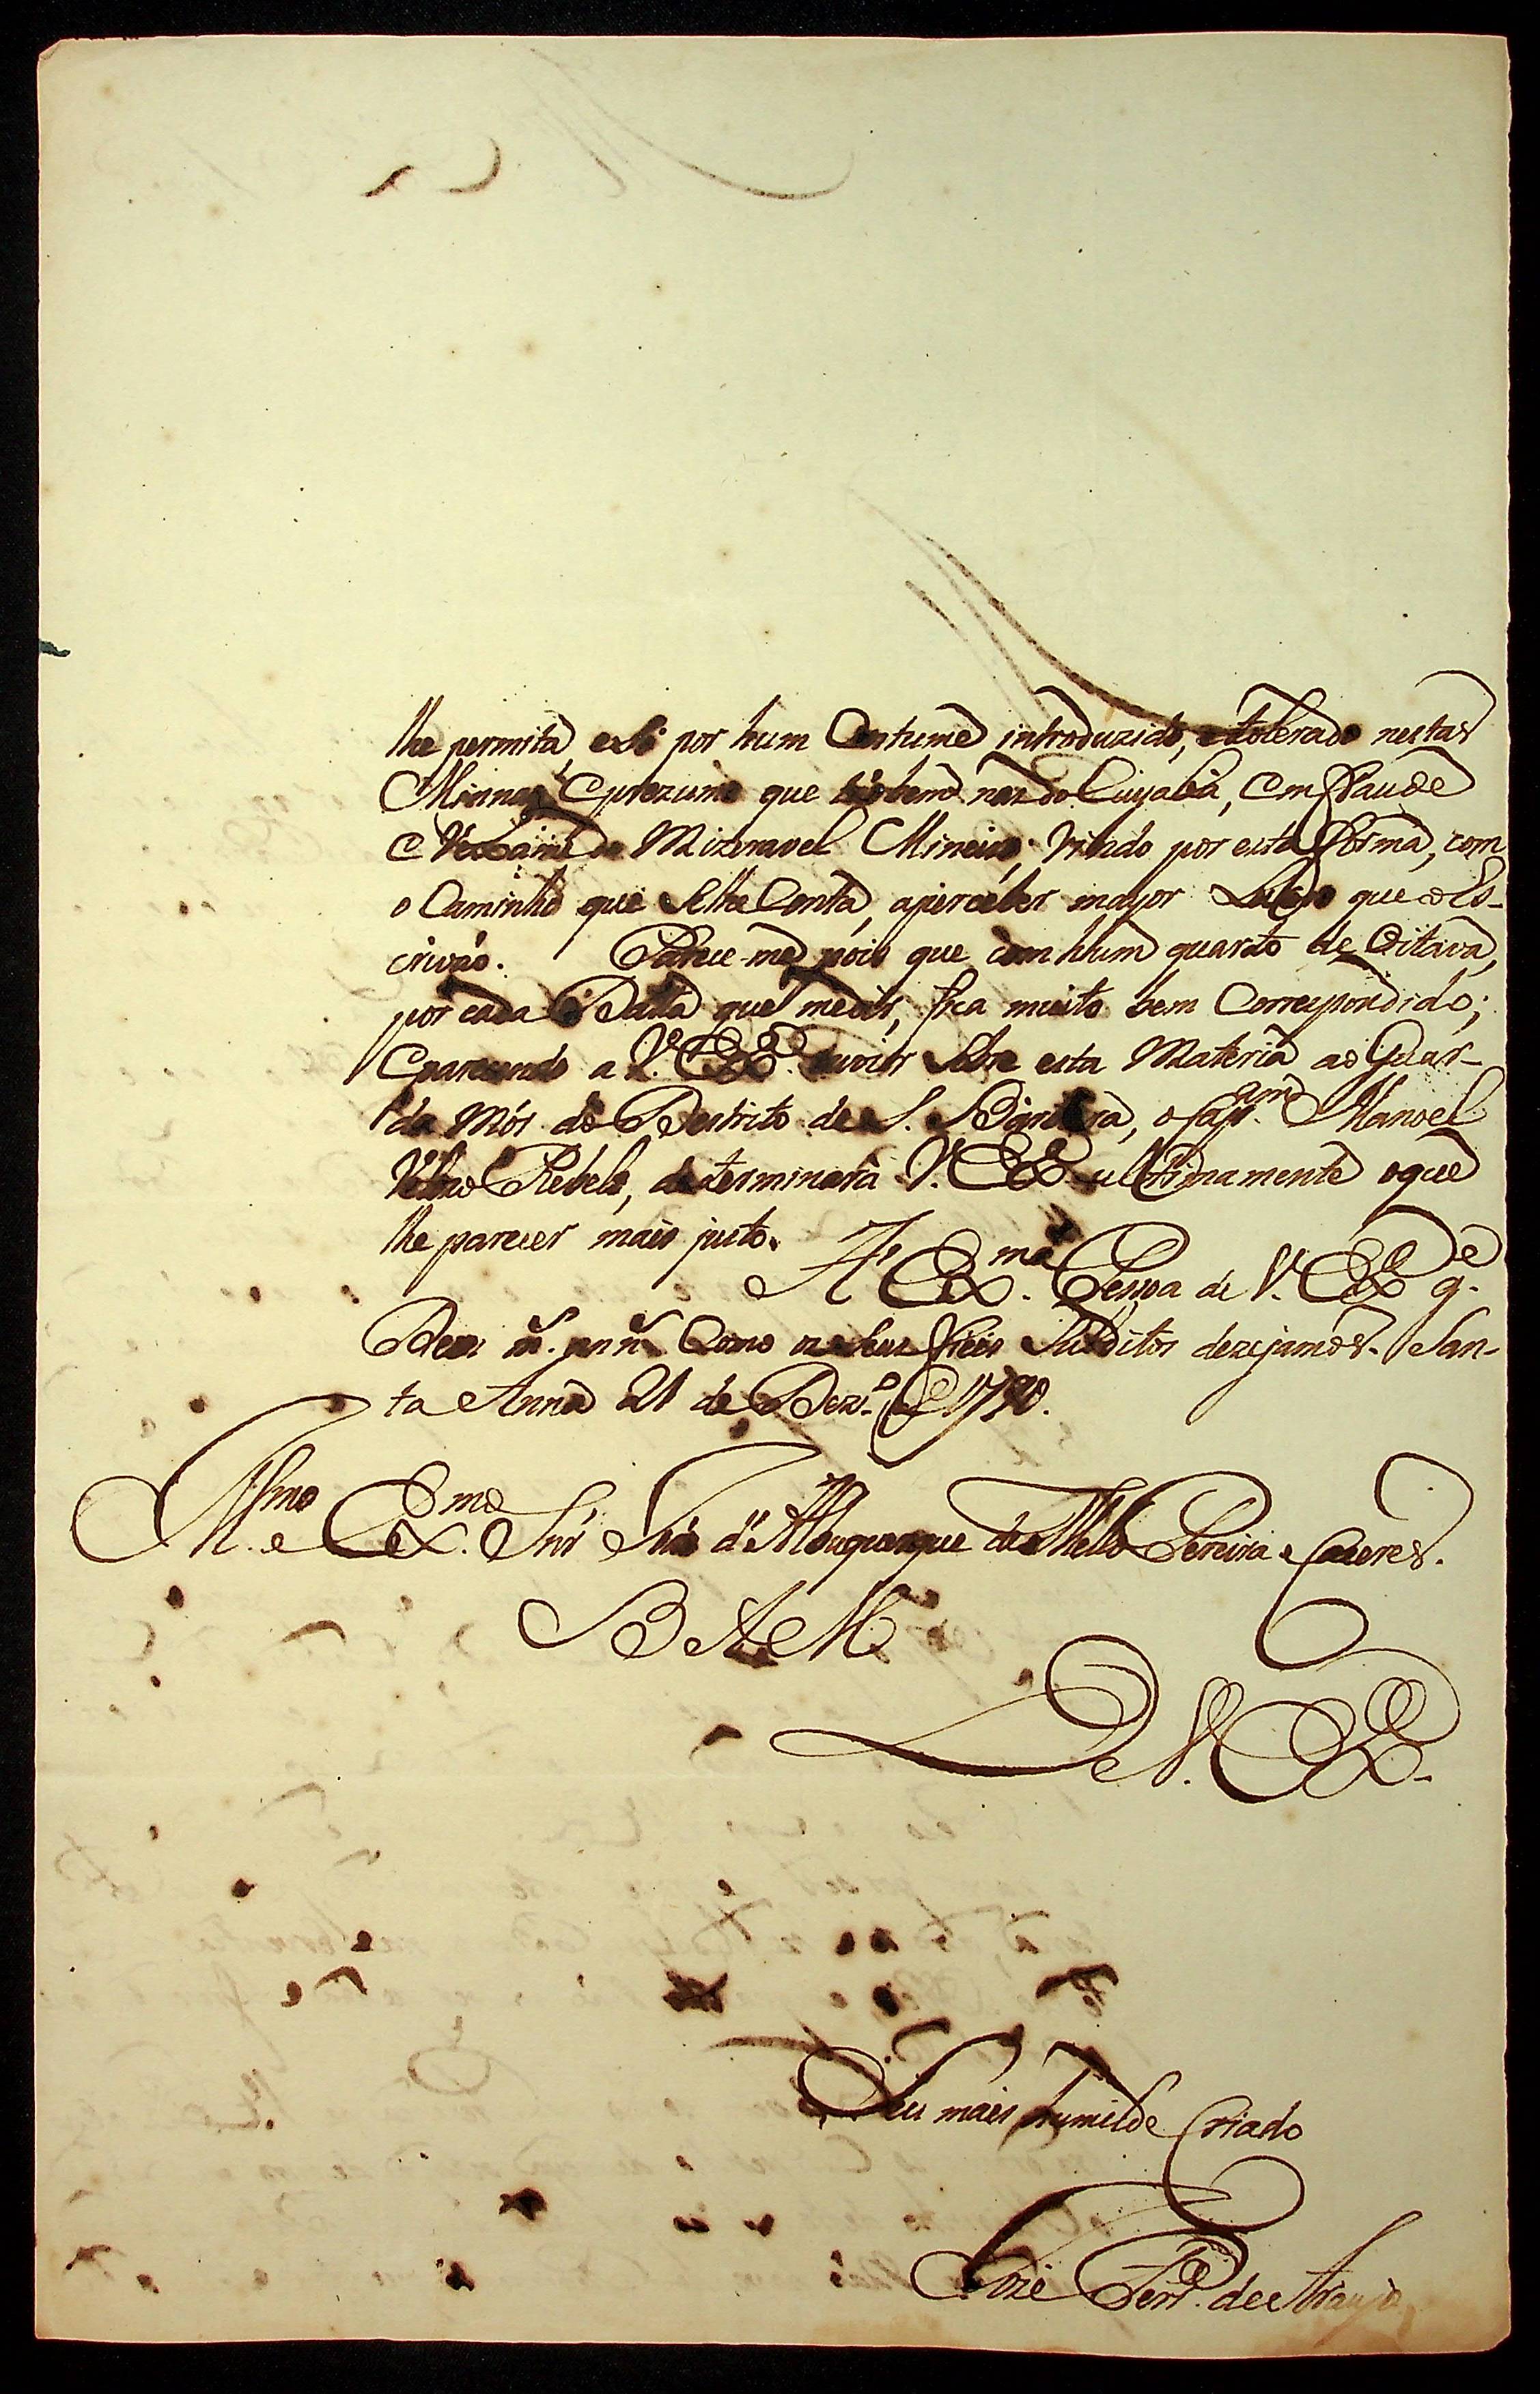 lhe permita, e Só por hum Custume introduzido, e tolerado nestas
Minnas, e prezumo que tão bem nas do Cuyabá, em fraude
e Vexame do Mizeravel Mineiro; vindo por esta forma, com
o Caminho que Selhe Conta, aperceber mayor que o Es-
crivão. Parece-me pois que com hum quarto de Oitava,
por cada Data que medir, fica muito bem Correspondido;
e parecendo a V. Exª. ouvir Sobre esta Materia ao Guar-
da Mór do Destrito de S. Barbara, o Capᵃᵐ. Manoel
Velozo Rebelo, determinará V. Exª. ultimamente o que
lhe parecer mais justo.
A' Exᵐᵃ. Pessoa de V. Exª. gᵉ.
Deos m.ˢ ann.ˢ Como os Seus fieis Subditos dezejamos. San-
ta Anna 21 de Dezº. de 1790.
Illᵐᵒ. e Exᵐᵒ. Snr' João d'Albuquerque de Mello Pereira e Caceres.
B A M
De V. Exª.
Seu mais humilde Criado
Joze Ferª. de Araujo